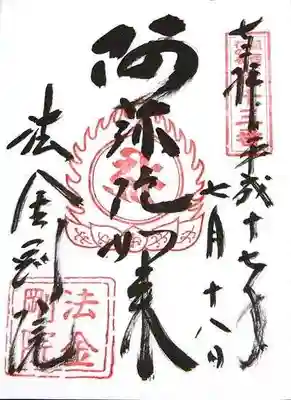 奉拝 平成十七年
七月十八日
阿弥陀如来
法金剛院
法金
剛院